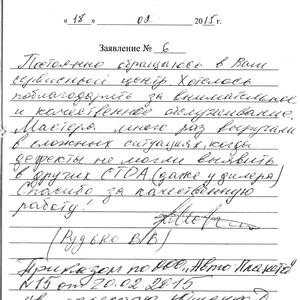 « 18 » 02 2015 г.
Заявление № 6
Постоянно обращаюсь в Ваш
сервисный центр. Хотелось
поблагодарить за внимательное
и качественное обслуживание.
Мастера много раз выручали
в сложных ситуациях, когда
дефекты не могли выявить
в других СТОА (даже у дилера)
Спасибо за качественную
работу!
(Рудько В.В)
Приказом по ООО «Авто Планета»
№15 от 20.02.2015